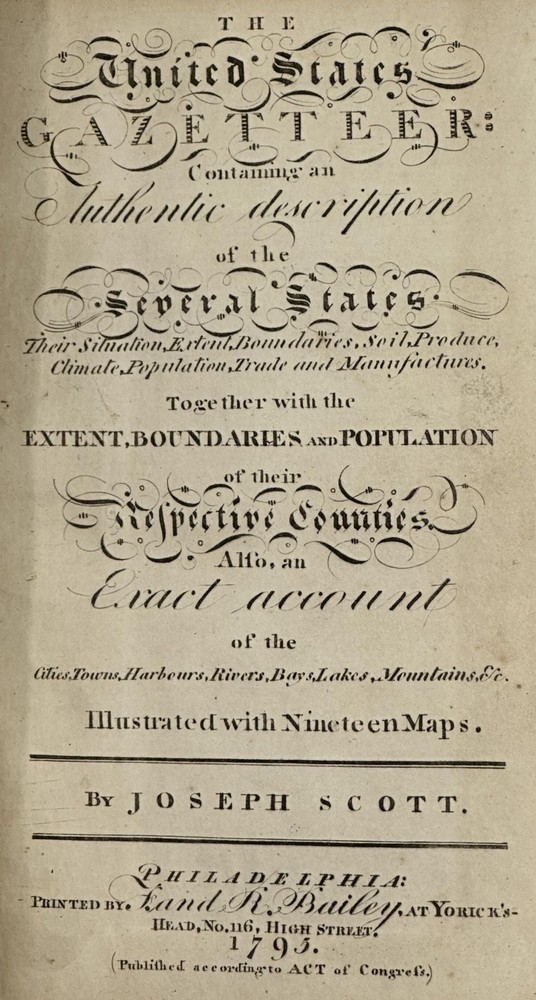 THE
United States
GAZETTEER:
Containing an
Authentic description
of the
Several States.
Their Situation, Extent, Boundaries, Soil, Produce,
Climate, Population, Trade and Manufactures.
Together with the
EXTENT, BOUNDARIES AND POPULATION
of their
Reſpective Counties.
Alſo, an
Exact account
of the
Cities, Towns, Harbours, Rivers, Bays, Lakes, Mountains, &c.
Illustrated with Nineteen Maps.
BY JOSEPH SCOTT.
PHILADELPHIA:
PRINTED BY F. and R. Bailey, AT YORICK'S-
HEAD, No. 116, HIGH STREET.
1795.
(Publiſhed according to ACT of Congreſs.)